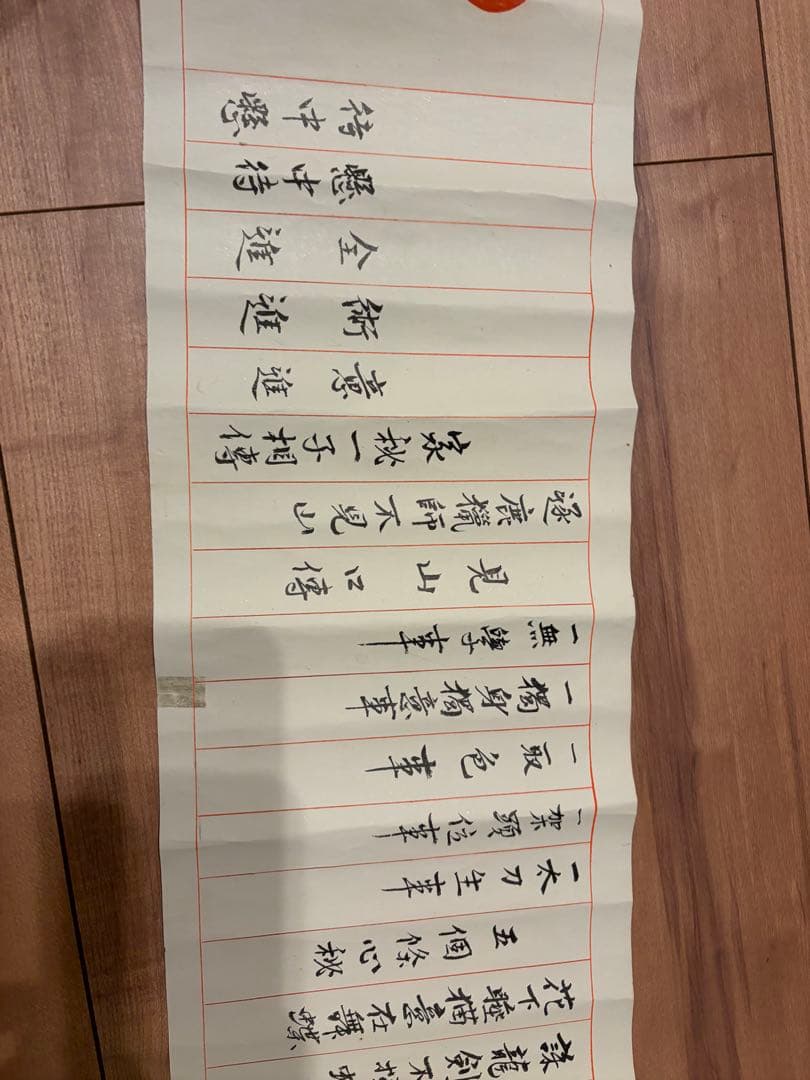 誅龍劍不
花下睡猫意在舞蝶
五個條心秘
一太刀生事
一架頭位事
一取色事
一獨身獨意事
一無事
見山口傳
逐鹿獵師不見山
家秘一子相傳
意進
術進
全進
懸中待
待中懸